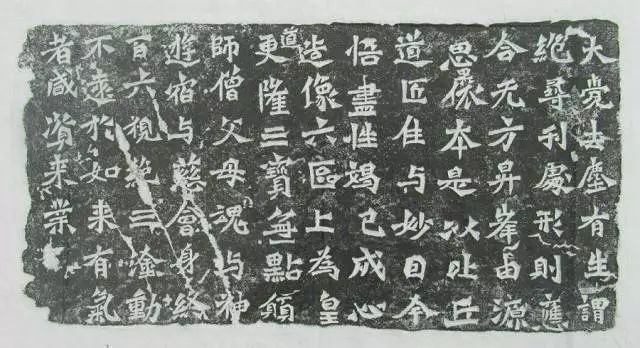 大覺去塵有生謂
絕尋刊處形則應
合无方昇峯由源
思攘本是以比丘
道匠住与妙因今
悟盡性竭己成心
造像六區上為皇
道更隆三寶無點願
師僧父母魂与神
遊宿与慈會身終
百六視絕三塗動
不遠於如来有氣
者咸資来業